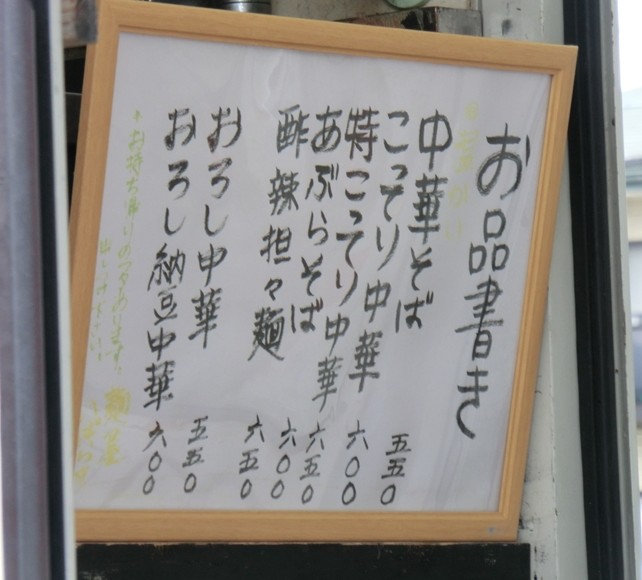 お品書き
中華そば 五五〇
こってり中華 六〇〇
特こってり中華 六五〇
あぶらそば 六〇〇
酢辣担々麺 六五〇
おろし中華 五五〇
おろし納豆中華 六〇〇
お持ち帰り